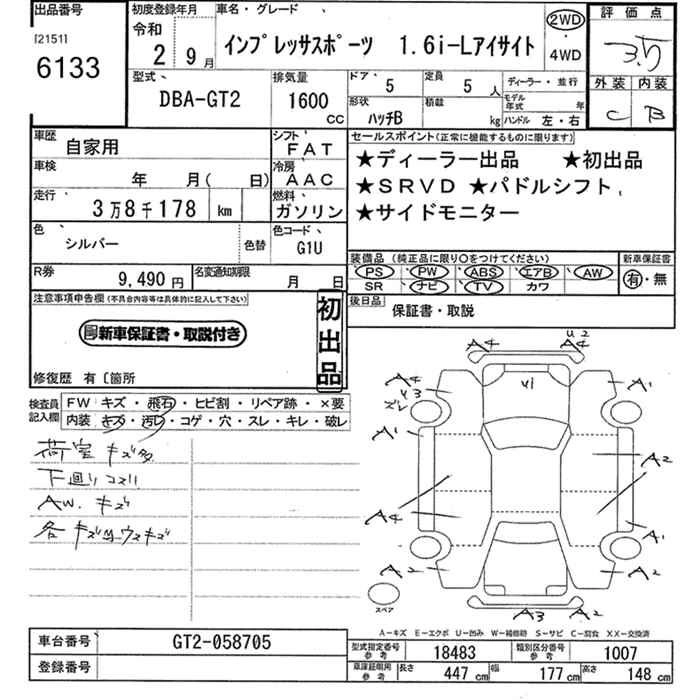 出品番号 初度登録年月 車名・グレード 評価点
[2151] 令和 2WD
6133 2 9月 インプレッサスポーツ 1.6i-Lアイサイト ・ 4WD 3.5
型式 排気量 ドア 5 定員 5人 ディーラー・並行 外装 内装
DBA-GT2 1600cc 形状 ハッチB 積載 kg モデル年式 年 C B
ハンドル 左・右
車歴 自家用 シフト FAT セールスポイント(正常に機能するものに限ります)
車検 年 月( 日) 冷房 AAC ★ディーラー出品 ★初出品
走行 3万8千178 km 燃料 ガソリン ★SRVD ★パドルシフト
★サイドモニター
色 シルバー 色替 色コード G1U
装備品(純正品に限り○をつけてください) 新車保証書
R券 9,490円 名変通知期限 月 日 PS PW ABS エアB AW 有・無
SR ナビ TV カワ
注意事項申告欄(不具合内容等は具体的に記入して下さい) 初出品 後日品 保証書・取説
新車保証書・取説付き
修復歴 有〔箇所
検査員記入欄 FW キズ・飛石・ヒビ割・リペア跡・×要
内装 キズ・汚レ・コゲ・穴・スレ・キレ・破レ
荷室 キズ多
下廻りコスリ
AW. キズ
各 キズ凹ウスキズ
A4 U2 A4
A4 U3 ズレ U1 A1
A1 A2
A4 A2
A2 A1
A2
スペア A3 A2
A-キズ E-エクボ U-凹み W-補修跡 S-サビ C-腐食 XX-交換済
車台番号 GT2-058705 型式指定番号 参考 18483 類別区分番号 参考 1007
登録番号 車庫証明用 参考 長さ 447cm 幅 177cm 高さ 148cm